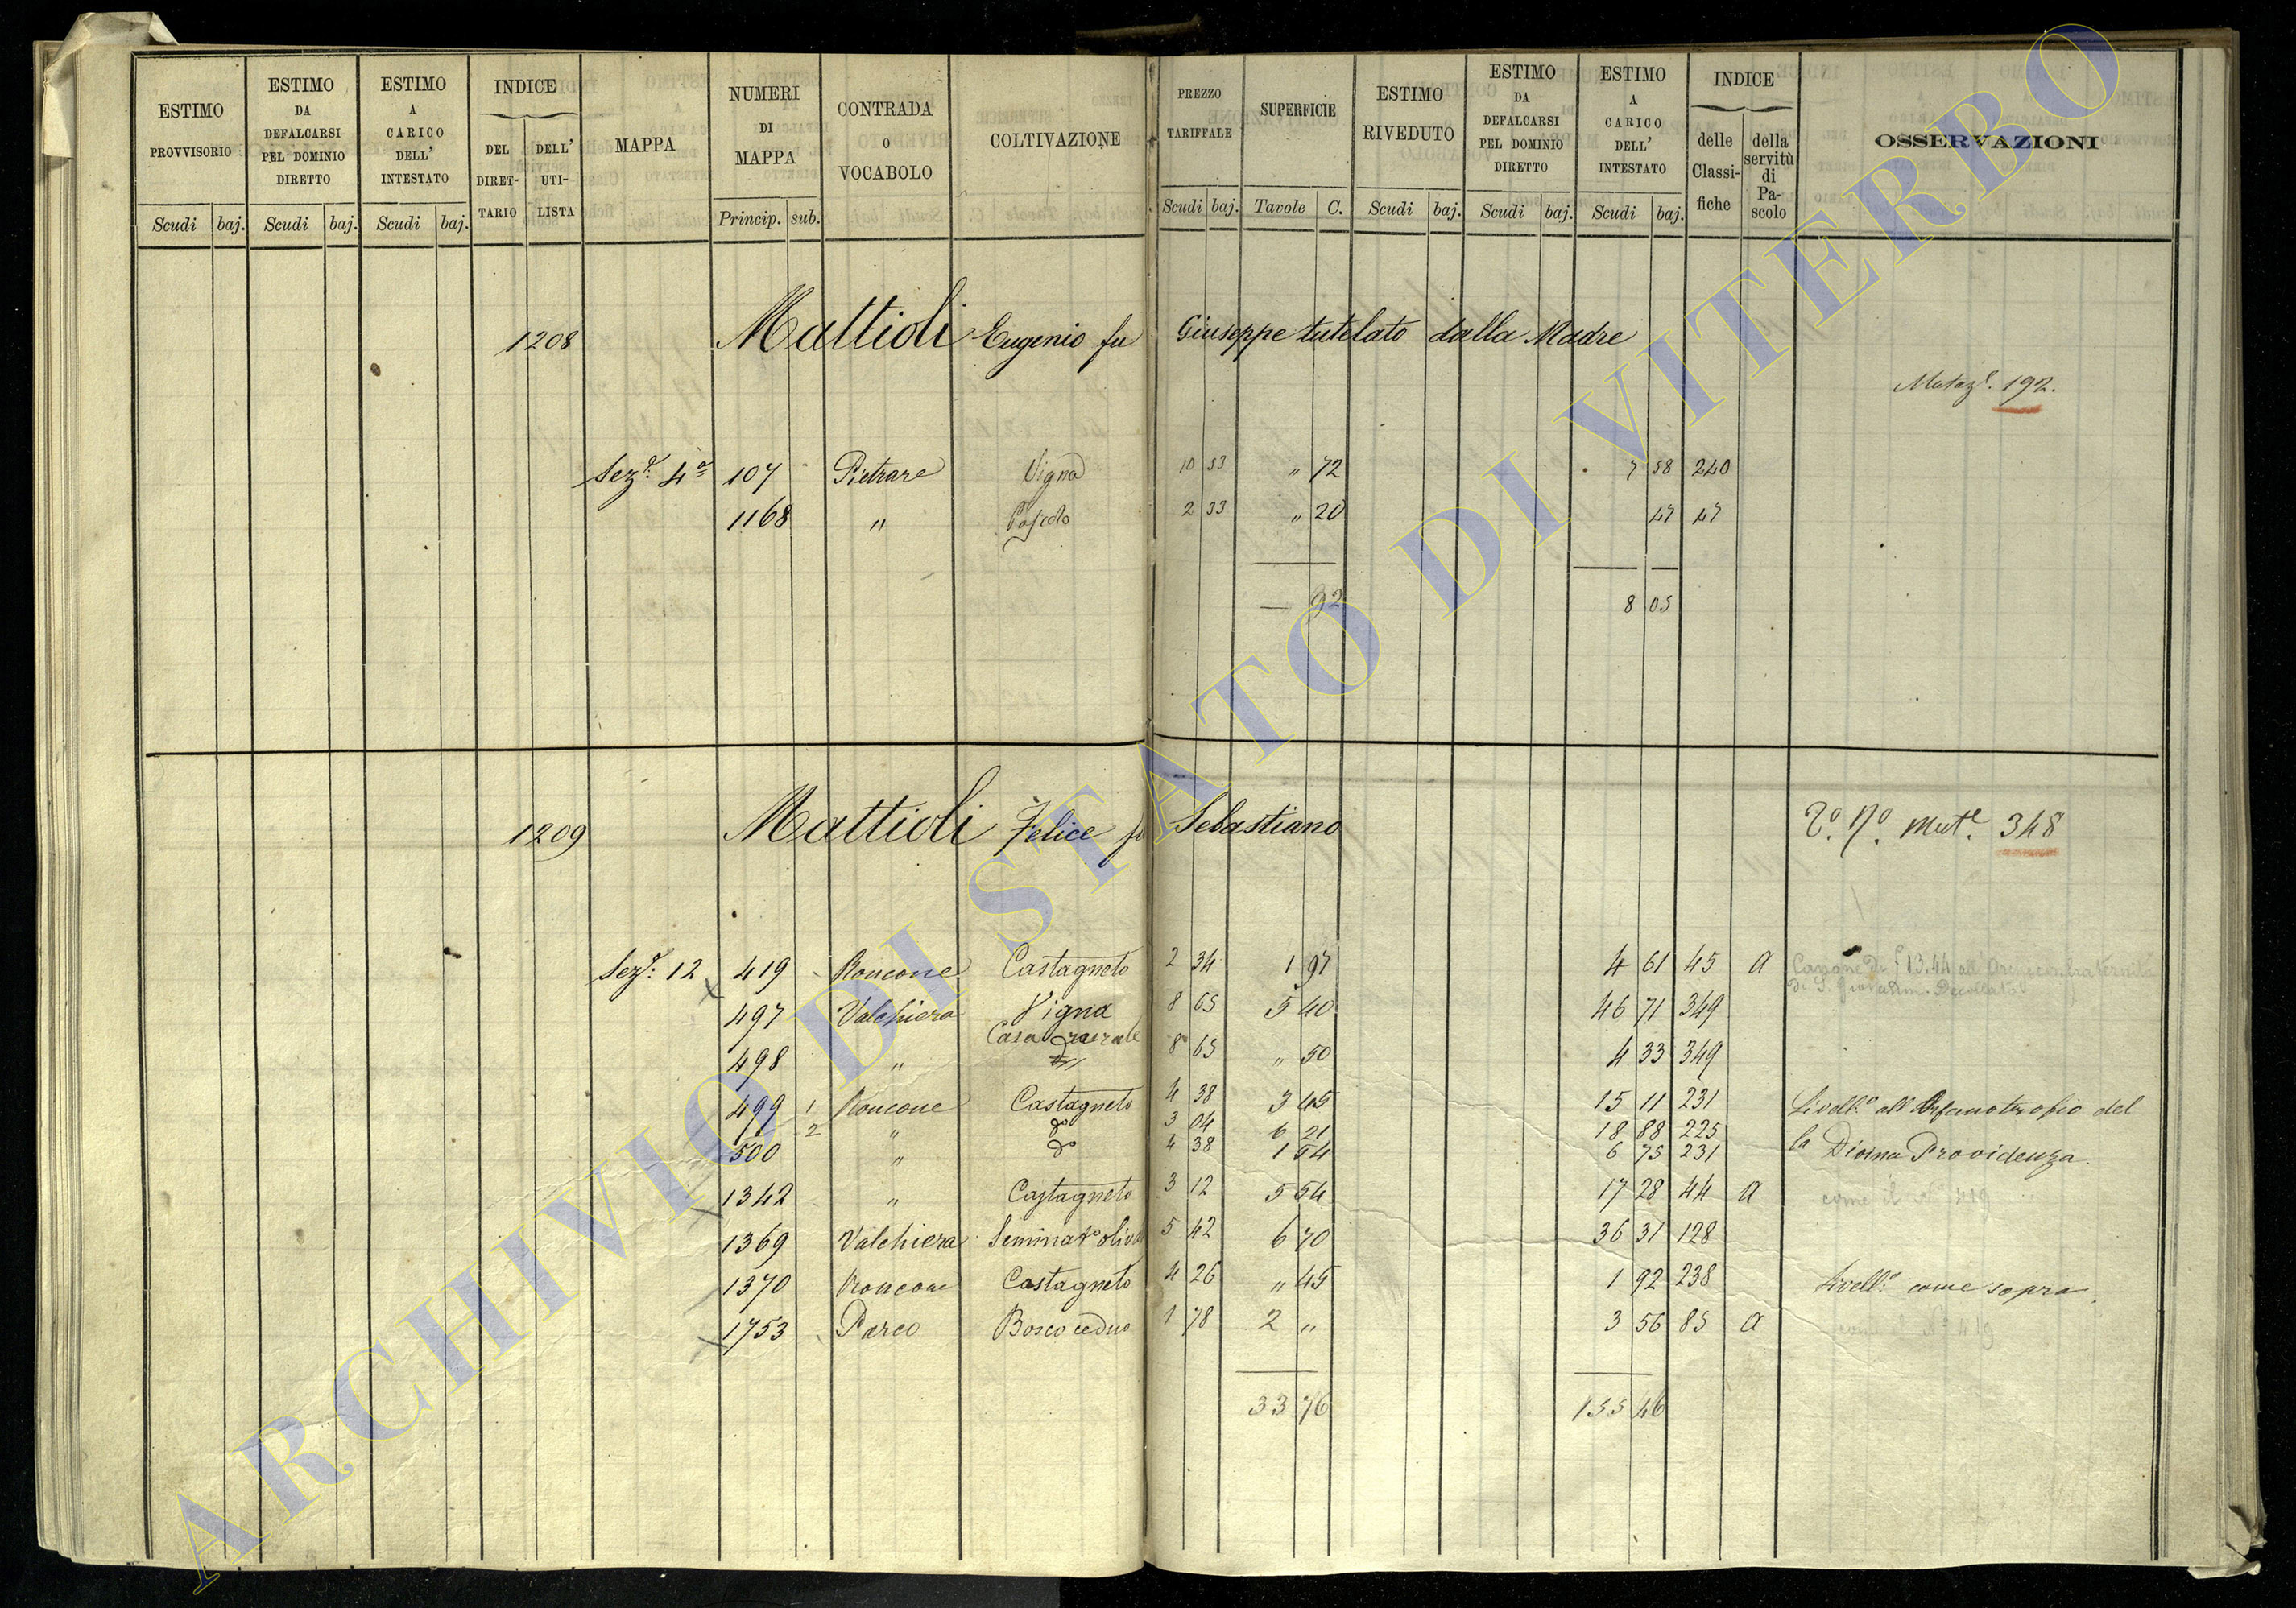 ESTIMO PROVVISORIO
Scudi baj.
ESTIMO DA DEFALCARSI PEL DOMINIO DIRETTO
Scudi baj.
ESTIMO A CARICO DELL' INTESTATO
Scudi baj.
INDICE
DEL DIRET-TARIO
DELL' UTI-LISTA
MAPPA
NUMERI DI MAPPA
Princip. sub.
CONTRADA O VOCABOLO
COLTIVAZIONE
PREZZO TARIFFALE
Scudi baj.
SUPERFICIE
Tavole C.
ESTIMO RIVEDUTO
Scudi baj.
ESTIMO DA DEFALCARSI PEL DOMINIO DIRETTO
Scudi baj.
ESTIMO A CARICO DELL' INTESTATO
Scudi baj.
INDICE
delle Classi-fiche
della servitù di Pa-scolo
OSSERVAZIONI
1208 Mattioli Eugenio fu Giuseppe tutelato dalla Madre
Mutaze. 192.
Seze. 4a 107 Pietrare Vigna 10 53 " 72 7 58 240
1168 " Pascolo 2 33 " 20 47 47
— 92 8 05
1209 Mattioli Felice fu Sebastiano
Vo. No. Mute. 348
Seze. 12 419 Roncone Castagneto 2 34 1 97 4 61 45 a Canone di 13.44 all'Arciconfraternita
di S. Giovanni Decollato
497 Valchiera Vigna 8 65 5 40 46 71 349
498 " Casa rurale 8 65 " 50 4 33 349
499 1 Roncone Castagneto 4 38 3 45 15 11 231 Livello. all'Orfanotrofio del
2 " do 3 04 6 21 18 88 225
500 " do 4 38 1 54 6 75 231 la Divina Providenza.
1342 " Castagneto 3 12 5 54 17 28 44 a come il No 419
1369 Valchiera Seminato. oliv 5 42 6 70 36 31 128
1370 Roncone Castagneto 4 26 " 45 1 92 238 Livello. come sopra.
1753 Parco Bosco ceduo 1 78 2 " 3 56 85 a come il No 419
33 76 155 46
ARCHIVIO DI STATO DI VITERBO